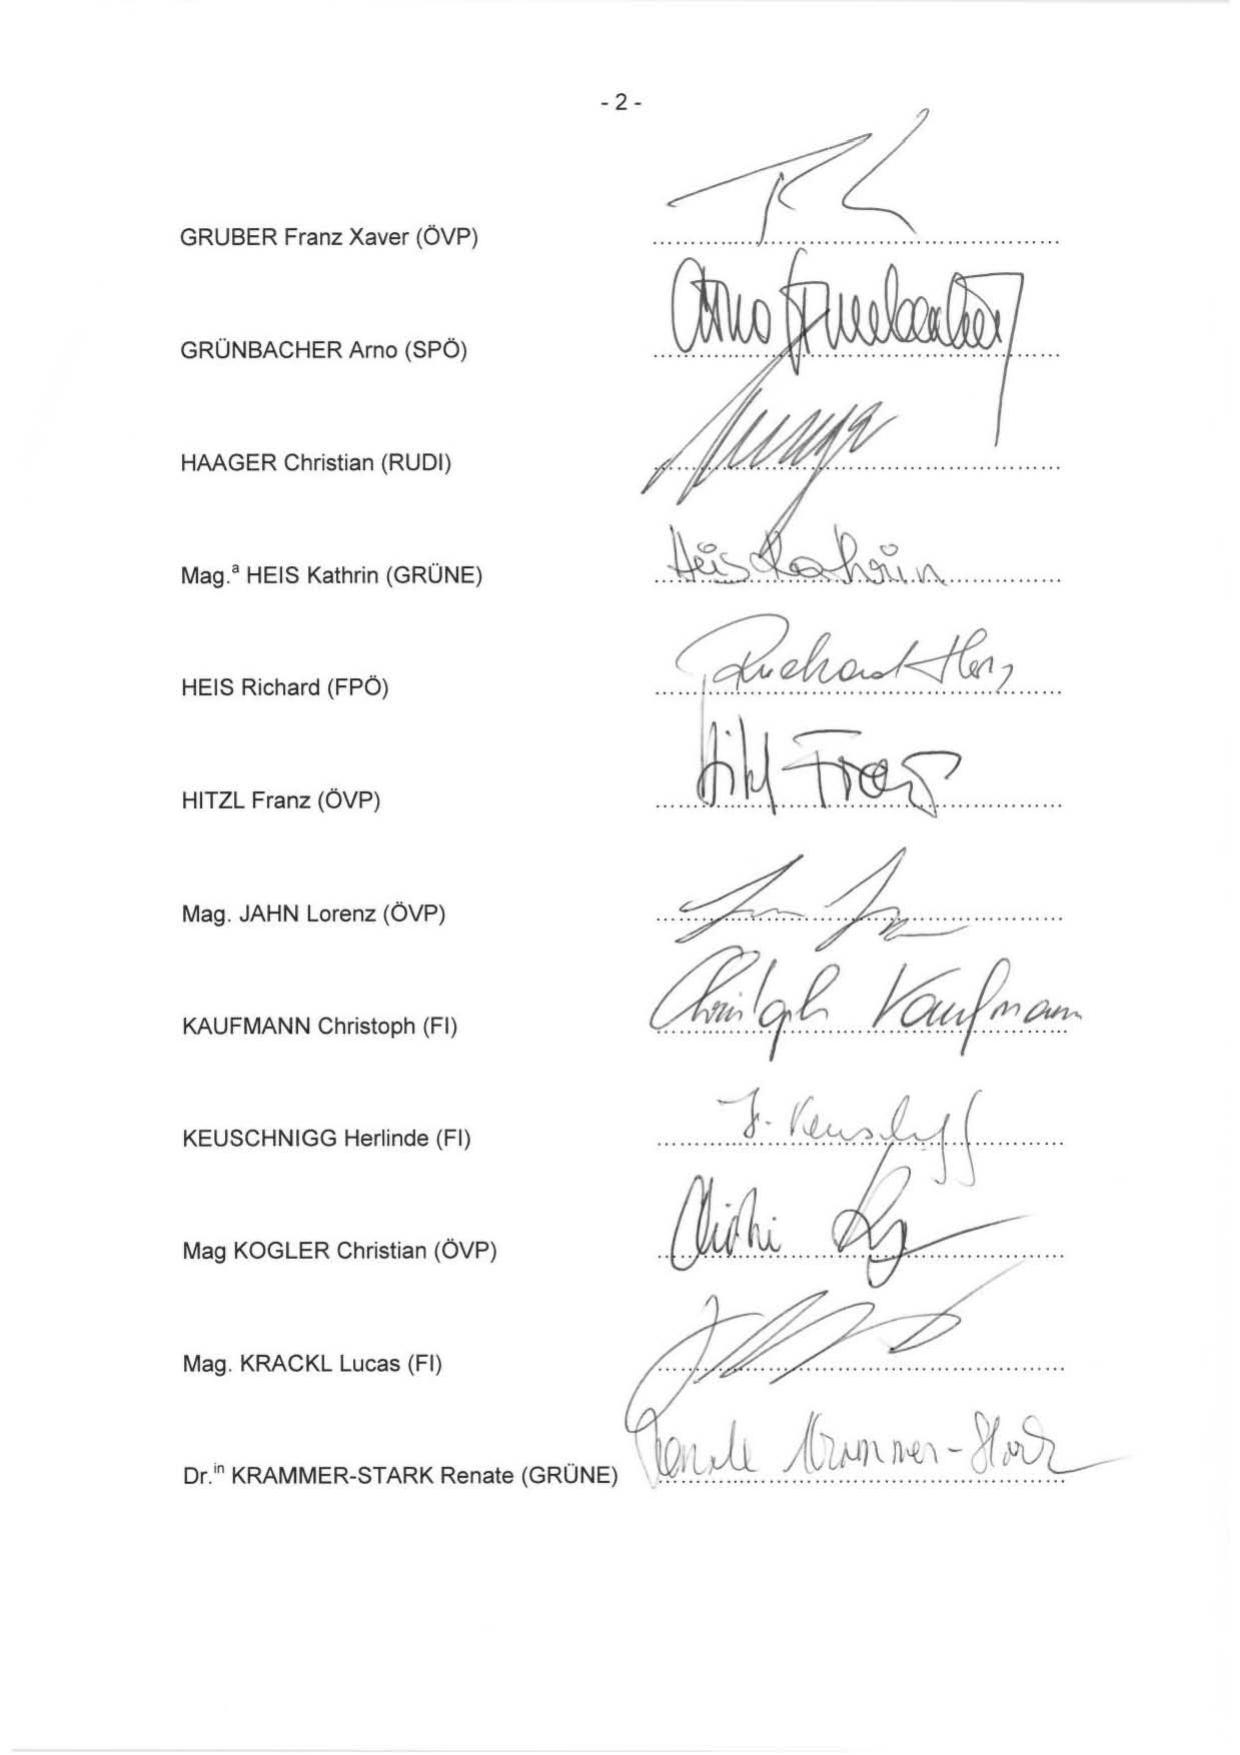 - 2 -
GRUBER Franz Xaver (ÖVP)
GRÜNBACHER Arno (SPÖ) Arno Grünbacher
HAAGER Christian (RUDI)
Mag.ª HEIS Kathrin (GRÜNE) Heis Kathrin
HEIS Richard (FPÖ) Richard Heis
HITZL Franz (ÖVP) Hitzl Franz
Mag. JAHN Lorenz (ÖVP)
KAUFMANN Christoph (FI) Christoph Kaufmann
KEUSCHNIGG Herlinde (FI) H. Keuschnigg
Mag KOGLER Christian (ÖVP)
Mag. KRACKL Lucas (FI)
Dr.ⁱⁿ KRAMMER-STARK Renate (GRÜNE) Renate Krammer-Stark